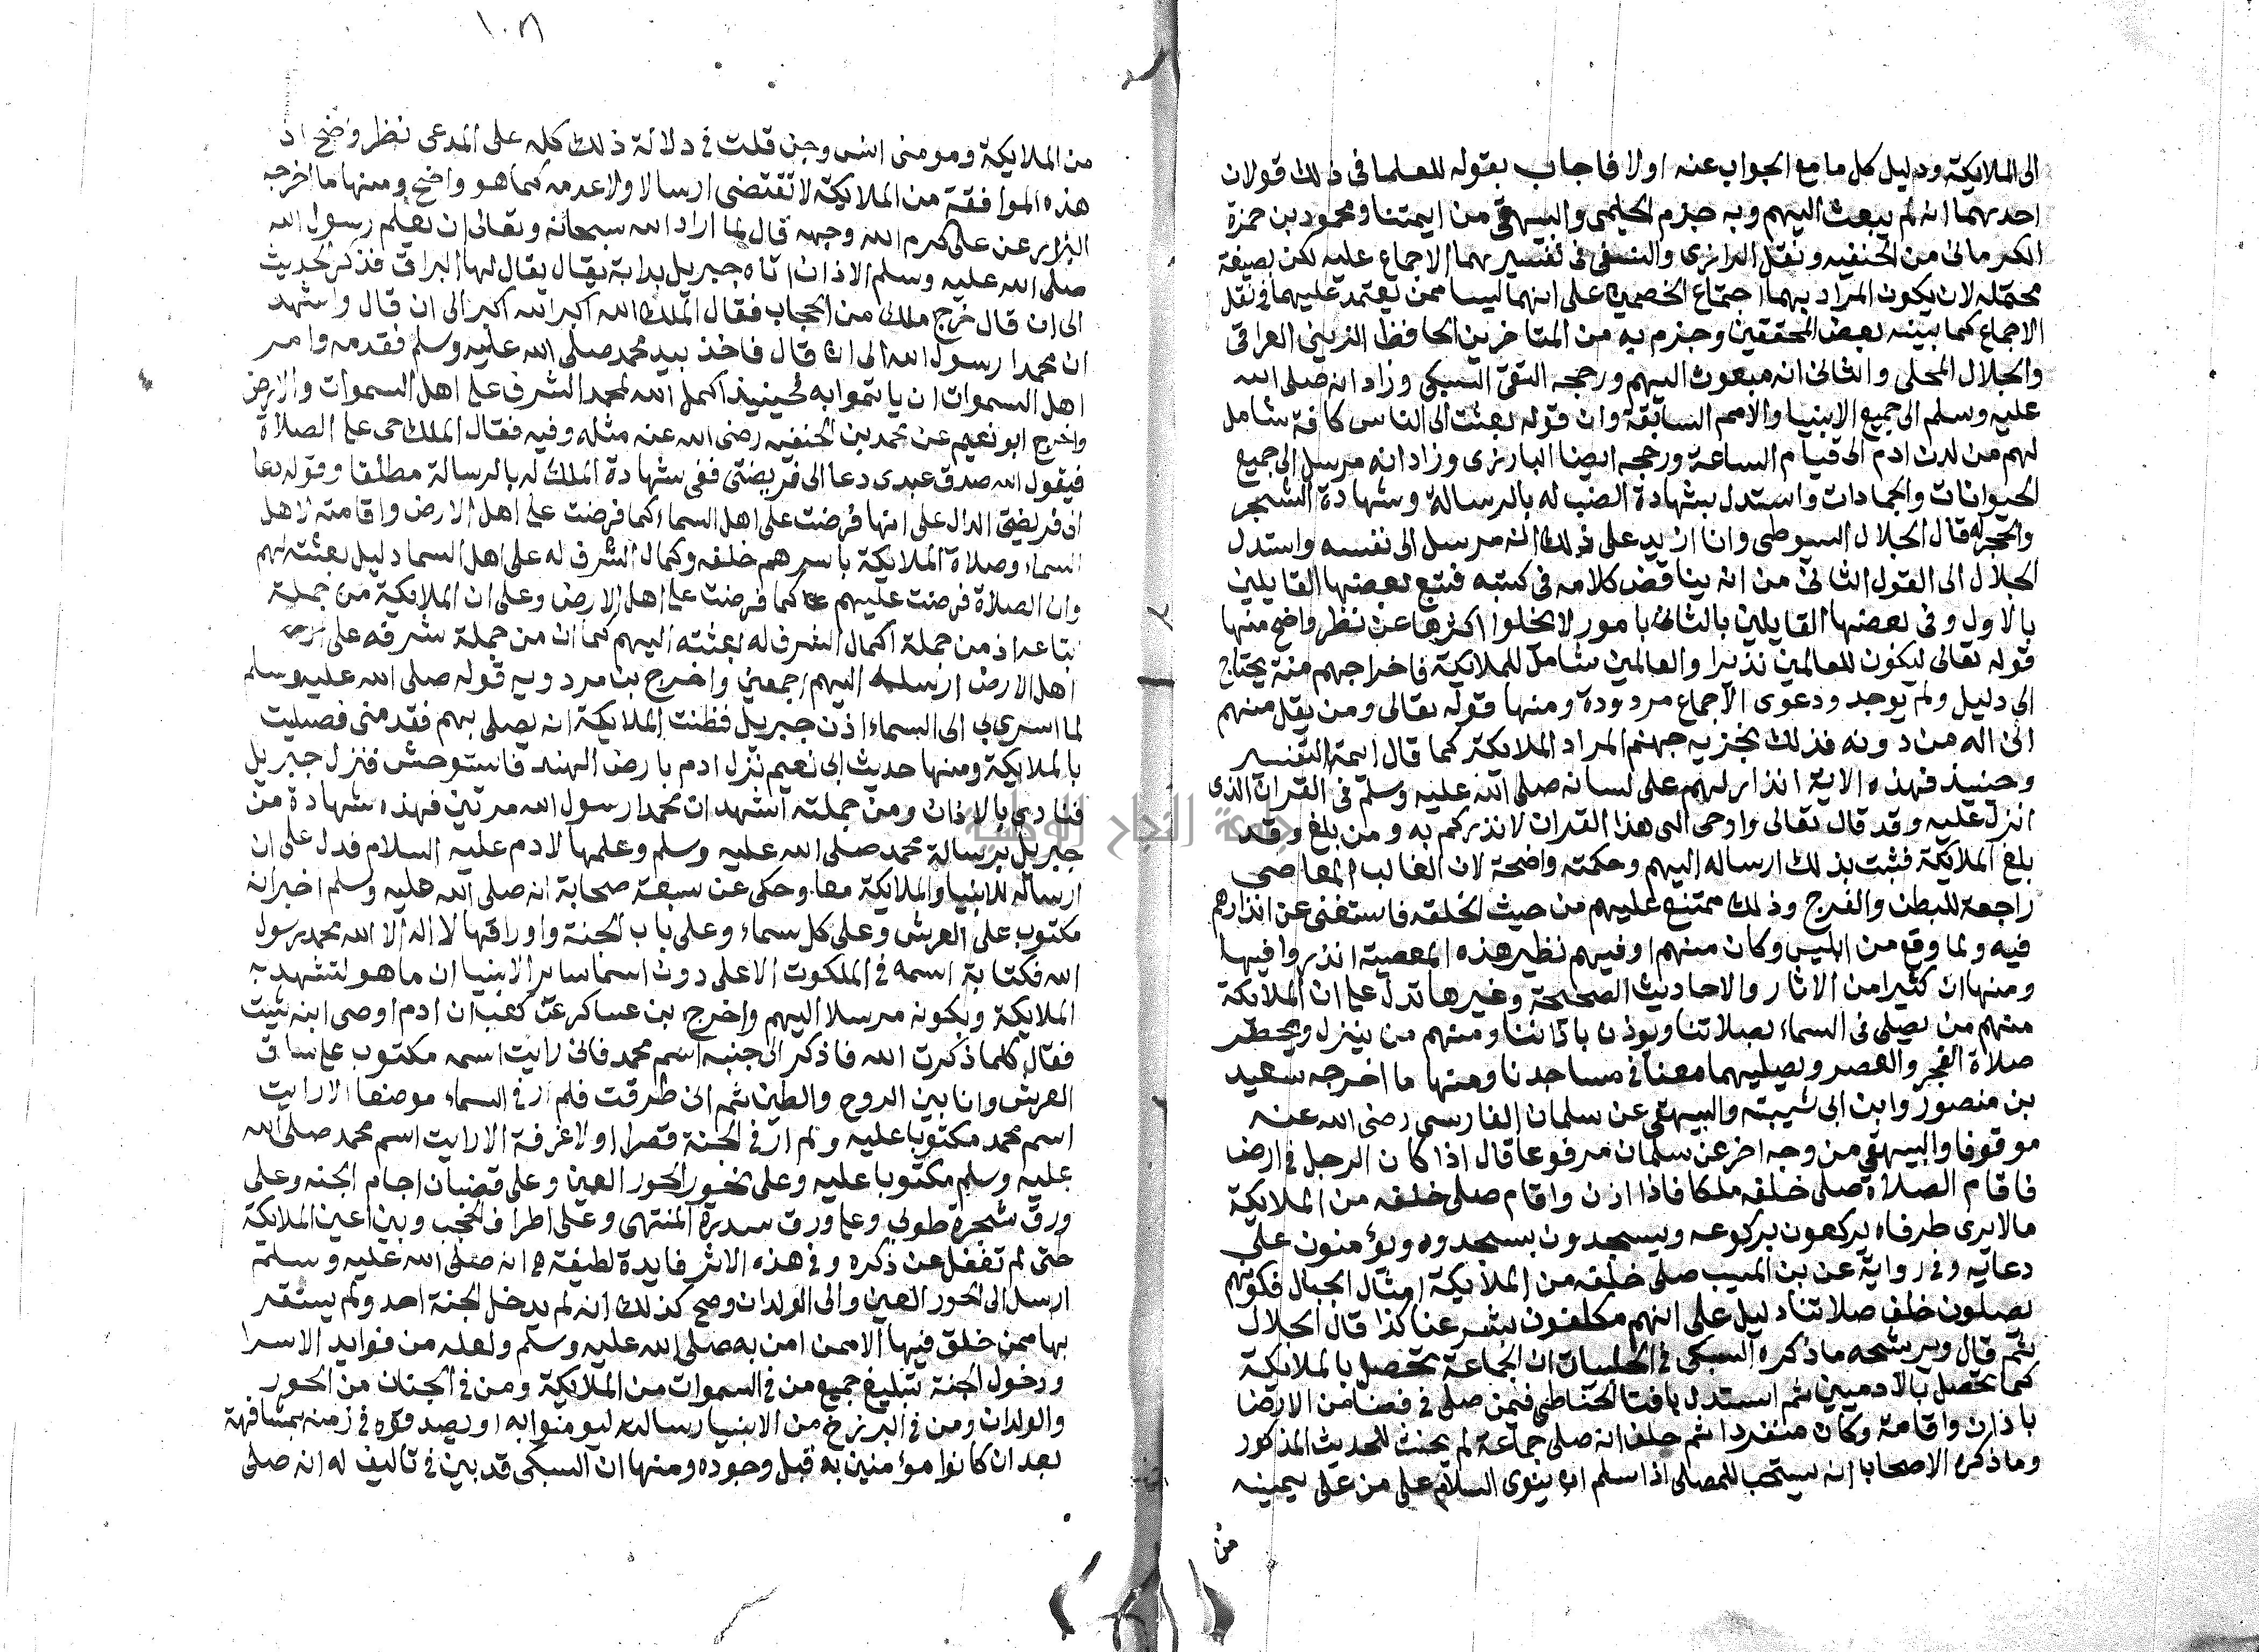 الى الملايكة ودليل كل ما مع الجواب عنه اولا فاجاب بقوله للعلما فى ذلك قولان
احدهما انه لم يبعث اليهم وبه جزم الحليمى والبيهقى من ايمتنا ومحمود بن حمزة
الكرمانى من الحنفيه ونقل الرازى والنسفى فى تفسيرهما الاجماع عليه لكن بصيغة
محتمله لان يكون المراد بهما اجتماع الخصمين على انهما ليسا ممن يعتمد عليهما فى نقل
الاجماع كما بينه بعض المحققين وجزم به من المتاخرين الحافظ الزينى العراقى
والجلال المحلى والثانى انه مبعوث اليهم ورجحه التقى السبكى وزاد انه صلى الله
عليه وسلم الى جميع الانبيا والامم السابقة وان قوله بعثت الى الناس كافة شامل
لهم من لدن ادم الى قيام الساعة ورجحه ايضا البارزى وزاد انه مرسل الى جميع
الحيوانات والجمادات واستدل بشهادة الضب له بالرسالة وشهادة الشجر
والحجر له قال الجلال السيوطى وانا ازيد على ذلك انه مرسل الى نفسه واستدل
الجلال الى القول الثانى من انه يناقض كلامه فى كتبه فتبع بعضها القايلين
بالاول وفى بعضها القايلين بالثانى بامور لا يخلوا اكثرها عن نظر واضح منها
قوله تعالى ليكون للعالمين نذيرا والعالمين شامل للملايكة فاخراجهم منه يحتاج
الى دليل ولم يوجد ودعوى الاجماع مردودة ومنها قوله تعالى ومن يقل منهم
انى اله من دونه فذلك نجزيه جهنم المراد الملايكة كما قال ايمة التفسير
وحينيذ فهذه الاية انذار لهم على لسانه صلى الله عليه وسلم فى القران الذى
انزل عليه وقد قال تعالى واوحى الى هذا القران لانذركم به ومن بلغ وقد
بلغ الملايكة فثبت بذلك ارساله اليهم وحكمته واضحة لان الغالب المعاصى
راجعة للبطن والفرج وذلك ممتنع عليهم من حيث الخلقه فاستغنى عن انذارهم
فيه ولما وقع من ابليس وكان منهم او فيهم نظير هذه المعصية انذروا فيها
ومنها ان كثيرا من الاثار والاحاديث الصحيحة وغيرها تدل على ان الملايكة
منهم من يصلى فى السماء بصلاتنا ويوذن باذاننا ومنهم من ينزل ويحضر
صلاة الفجر والعصر ويصليهما معنا فى مساجدنا ومنها ما اخرجه سعيد
بن منصور وابن ابى شيبة والبيهقى عن سلمان الفارسى رضى الله عنه
موقوفا والبيهقى من وجه اخر عن سلمان مرفوعا قال اذا كان الرجل فى ارض
فاقام الصلاة صلى خلفه ملكا فاذا اذن واقام صلى خلفه من الملايكة
مالا يرى طرفاه يركعون بركوعه ويسجدون بسجدوه ويؤمنون على
دعايه وفى رواية عن بن المسيب صلى خلفه من الملايكة امثال الجبال فكونهم
يصلون خلف صلاتنا دليل على انهم مكلفون بشرعنا كذا قال الجلال
ثم قال ويرشحه ما ذكره السبكى فى الحلبيات ان الجماعة تحصل بالملايكة
كما تحصل بالادميين ثم استدل بافتا الحناطى فيمن صلى فى فضا من الارض
باذان واقامة وكان منفردا ثم حلف انه صلى جماعة لم يحنث للحديث المذكور
وما ذكره الاصحاب انه يستحب للمصلى اذا سلم ان ينوى السلام على من على يمينه
من
١٠٨
من الملايكة ومومنى انس وجن قلت فى دلالة ذلك كله على المدعى نظر واضح اذ
هذه الموافقة من الملايكة لا تقتضى ارسالا ولا عدمه كما هو واضح ومنها ما اخرجه
البزار عن على كرم الله وجهه قال لما اراد الله سبحانه وتعالى ان يعلم رسول الله
صلى الله عليه وسلم الاذان اتاه جبريل بدابة يقال يقال لها البراق فذكر الحديث
الى ان قال خرج ملك من الحجاب فقال الملك الله اكبر الله اكبر الى ان قال واشهد
ان محمدا رسول الله الى ان قال فاخذ بيد محمد صلى الله عليه وسلم فقدمه وامر
اهل السموات ان ياتموا به فحينيذ اكمل الله لمحمد الشرف على اهل السموات والارض
واخرج ابو نعيم عن محمد بن الحنفيه رضى الله عنه مثله وفيه فقال الملك حى على الصلاة
فيقول الله صدق عبدى دعا الى فريضتى ففى شهادة الملك له بالرسالة مطلقا وقوله دعا
الى فريضتى الدال على انها فرضت على اهل السماء كما فرضت على اهل الارض واقامته لاهل
السماء وصلاة الملايكة باسرهم خلفه وكمال الشرف له على اهل السما دليل بعثته لهم
وان الصلاة فرضت عليهم كما فرضت على اهل الارض وعلى ان الملايكة من جملة
اتباعه اذ من جملة اكمال الشرف له بعثته اليهم كما ان من جملة شرفه على
اهل الارض ارسله اليهم اجمعين واخرج بن مردويه قوله صلى الله عليه وسلم
لما اسرى بى الى السماء اذن جبريل فظنت الملايكة انه يصلى بهم فقدمنى فصليت
بالملايكة ومنها حديث ابى نعيم نزل ادم بارض الهند فاستوحش فنزل جبريل
فنادى بالاذان ومن جملته اشهد ان محمدا رسول الله مرتين فهذه شهادة من
جبريل برسالة محمد صلى الله عليه وسلم وعلمها لادم عليه السلام فدل على ان
ارساله للانبيا والملايكة معا وحكى عن سبعة صحابة انه صلى الله عليه وسلم اخبر انه
مكتوب على العرش وعلى كل سماء وعلى باب الجنة واوراقها لا اله الا الله محمد رسول
الله فكتابة اسمه فى الملكوت الاعلى دون اسما ساير الانبيا ان ما هو لتشهد به
الملايكة وبكونه مرسلا اليهم واخرج بن عساكر عن كعب ان ادم اوصى ابنه شيت
فقال كلما ذكرت الله فاذكر الى جنبه اسم محمد فانى رايت اسمه مكتوب على ساق
العرش وانا بين الروح والطين ثم انى طرقت فلم ار فى السماء موضعا الا رايت
اسم محمد مكتوبا عليه ولم ار فى الجنة قصرا او لا غرفة الا رايت اسم محمد صلى الله
عليه وسلم مكتوبا عليه وعلى نحور الحور العين وعلى قضبان اجام الجنه وعلى
ورق شجرة طوبى وعلى ورق سدرة المنتهى وعلى اطراف الحجب وبين اعين الملايكة
حتى لم تغفل عن ذكره وفى هذه الاثر فايدة لطيفة هى انه صلى الله عليه وسلم
ارسل الى الحور العين والى الولدان وصح كذلك انه لم يدخل الجنة احد ولم يستقر
بها ممن خلق فيها الا من امن به صلى الله عليه وسلم ولعله من فوايد الاسرا
ودخول الجنة تبليغ جميع من فى السموات من الملايكة ومن فى الجنان من الحور
والولدان ومن فى البرزخ من الانبيا رسالته ليومنوا به او يصدقوه فى زمنه بمشافهة
بعد ان كانوا مؤمنين به قبل وجوده ومنها ان السبكى قد بين فى تاليف له انه صلى
جامعة النجاح الوطنية